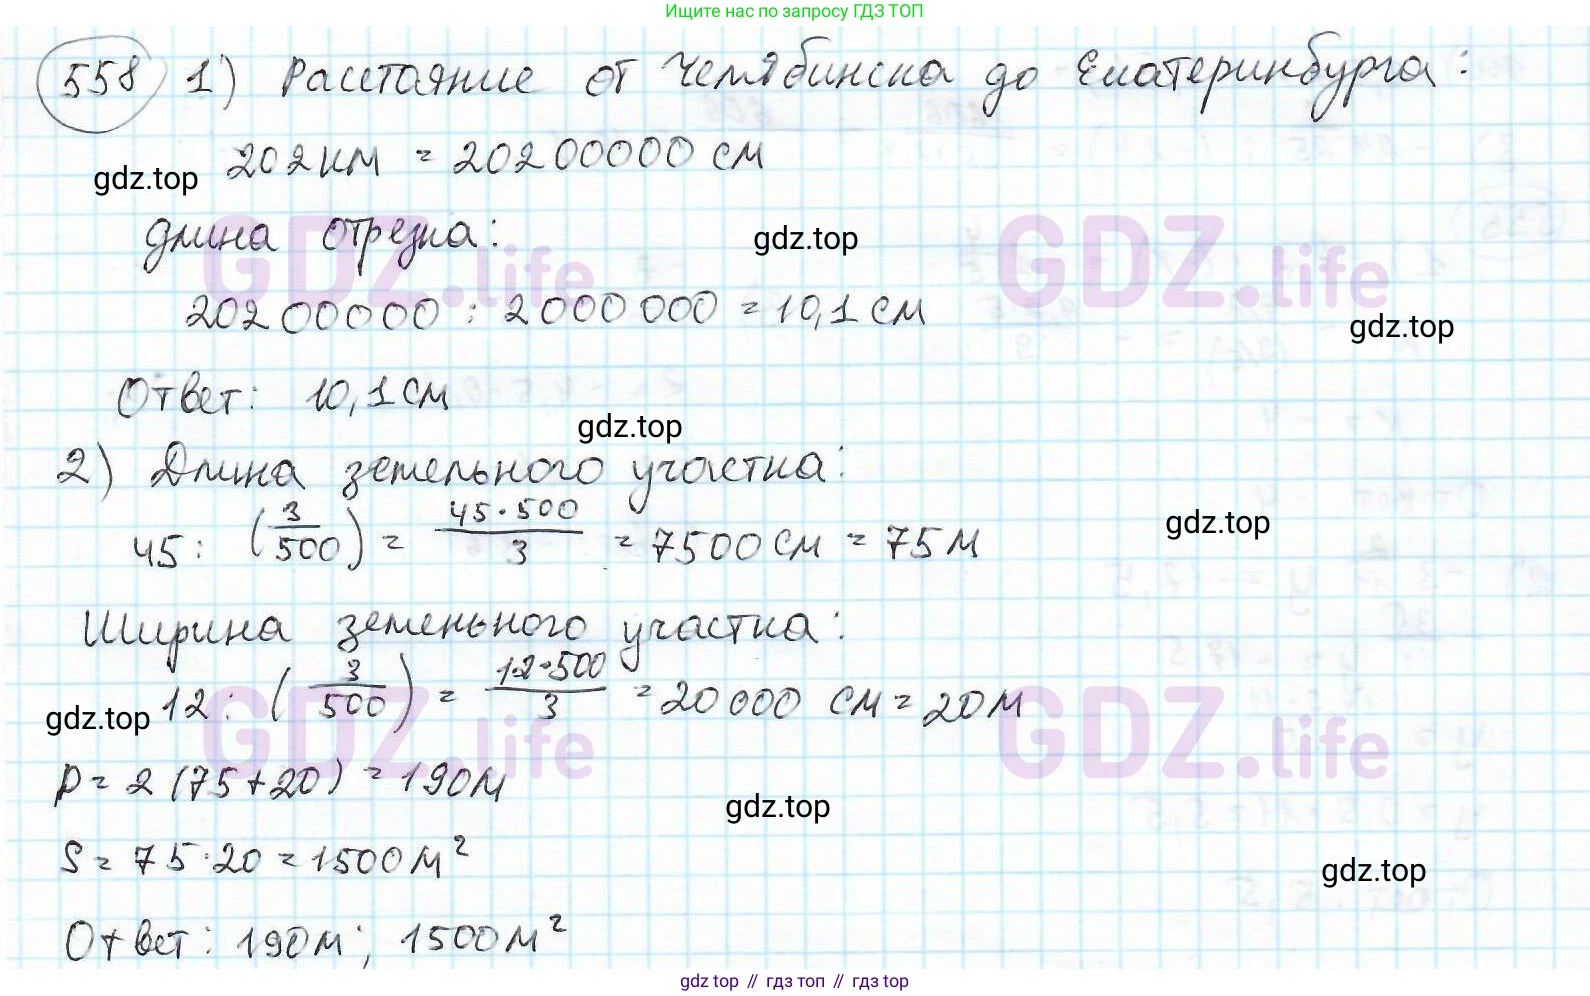 Ищите нас по запросу ГДЗ ТОП
558 1) Расстояние от Челябинска до Екатеринбурга:
202 км = 20200000 см
gdz.top
длина отрезка:
gdz.top
GDZ.life GDZ.life
20200000 : 2000000 = 10,1 см
gdz.top
Ответ: 10,1 см
gdz.top
2) Длина земельного участка:
45 : (3/500) = 45·500/3 = 7500 см = 75 м
gdz.top
Ширина земельного участка:
12 : (3/500) = 12·500/3 = 20000 см = 20 м
gdz.top
GDZ.life GDZ.life
P = 2 (75+20) = 190 м
gdz.top
S = 75·20 = 1500 м²
gdz.top
Ответ: 190 м; 1500 м²
gdz top // гдз топ // gdz top